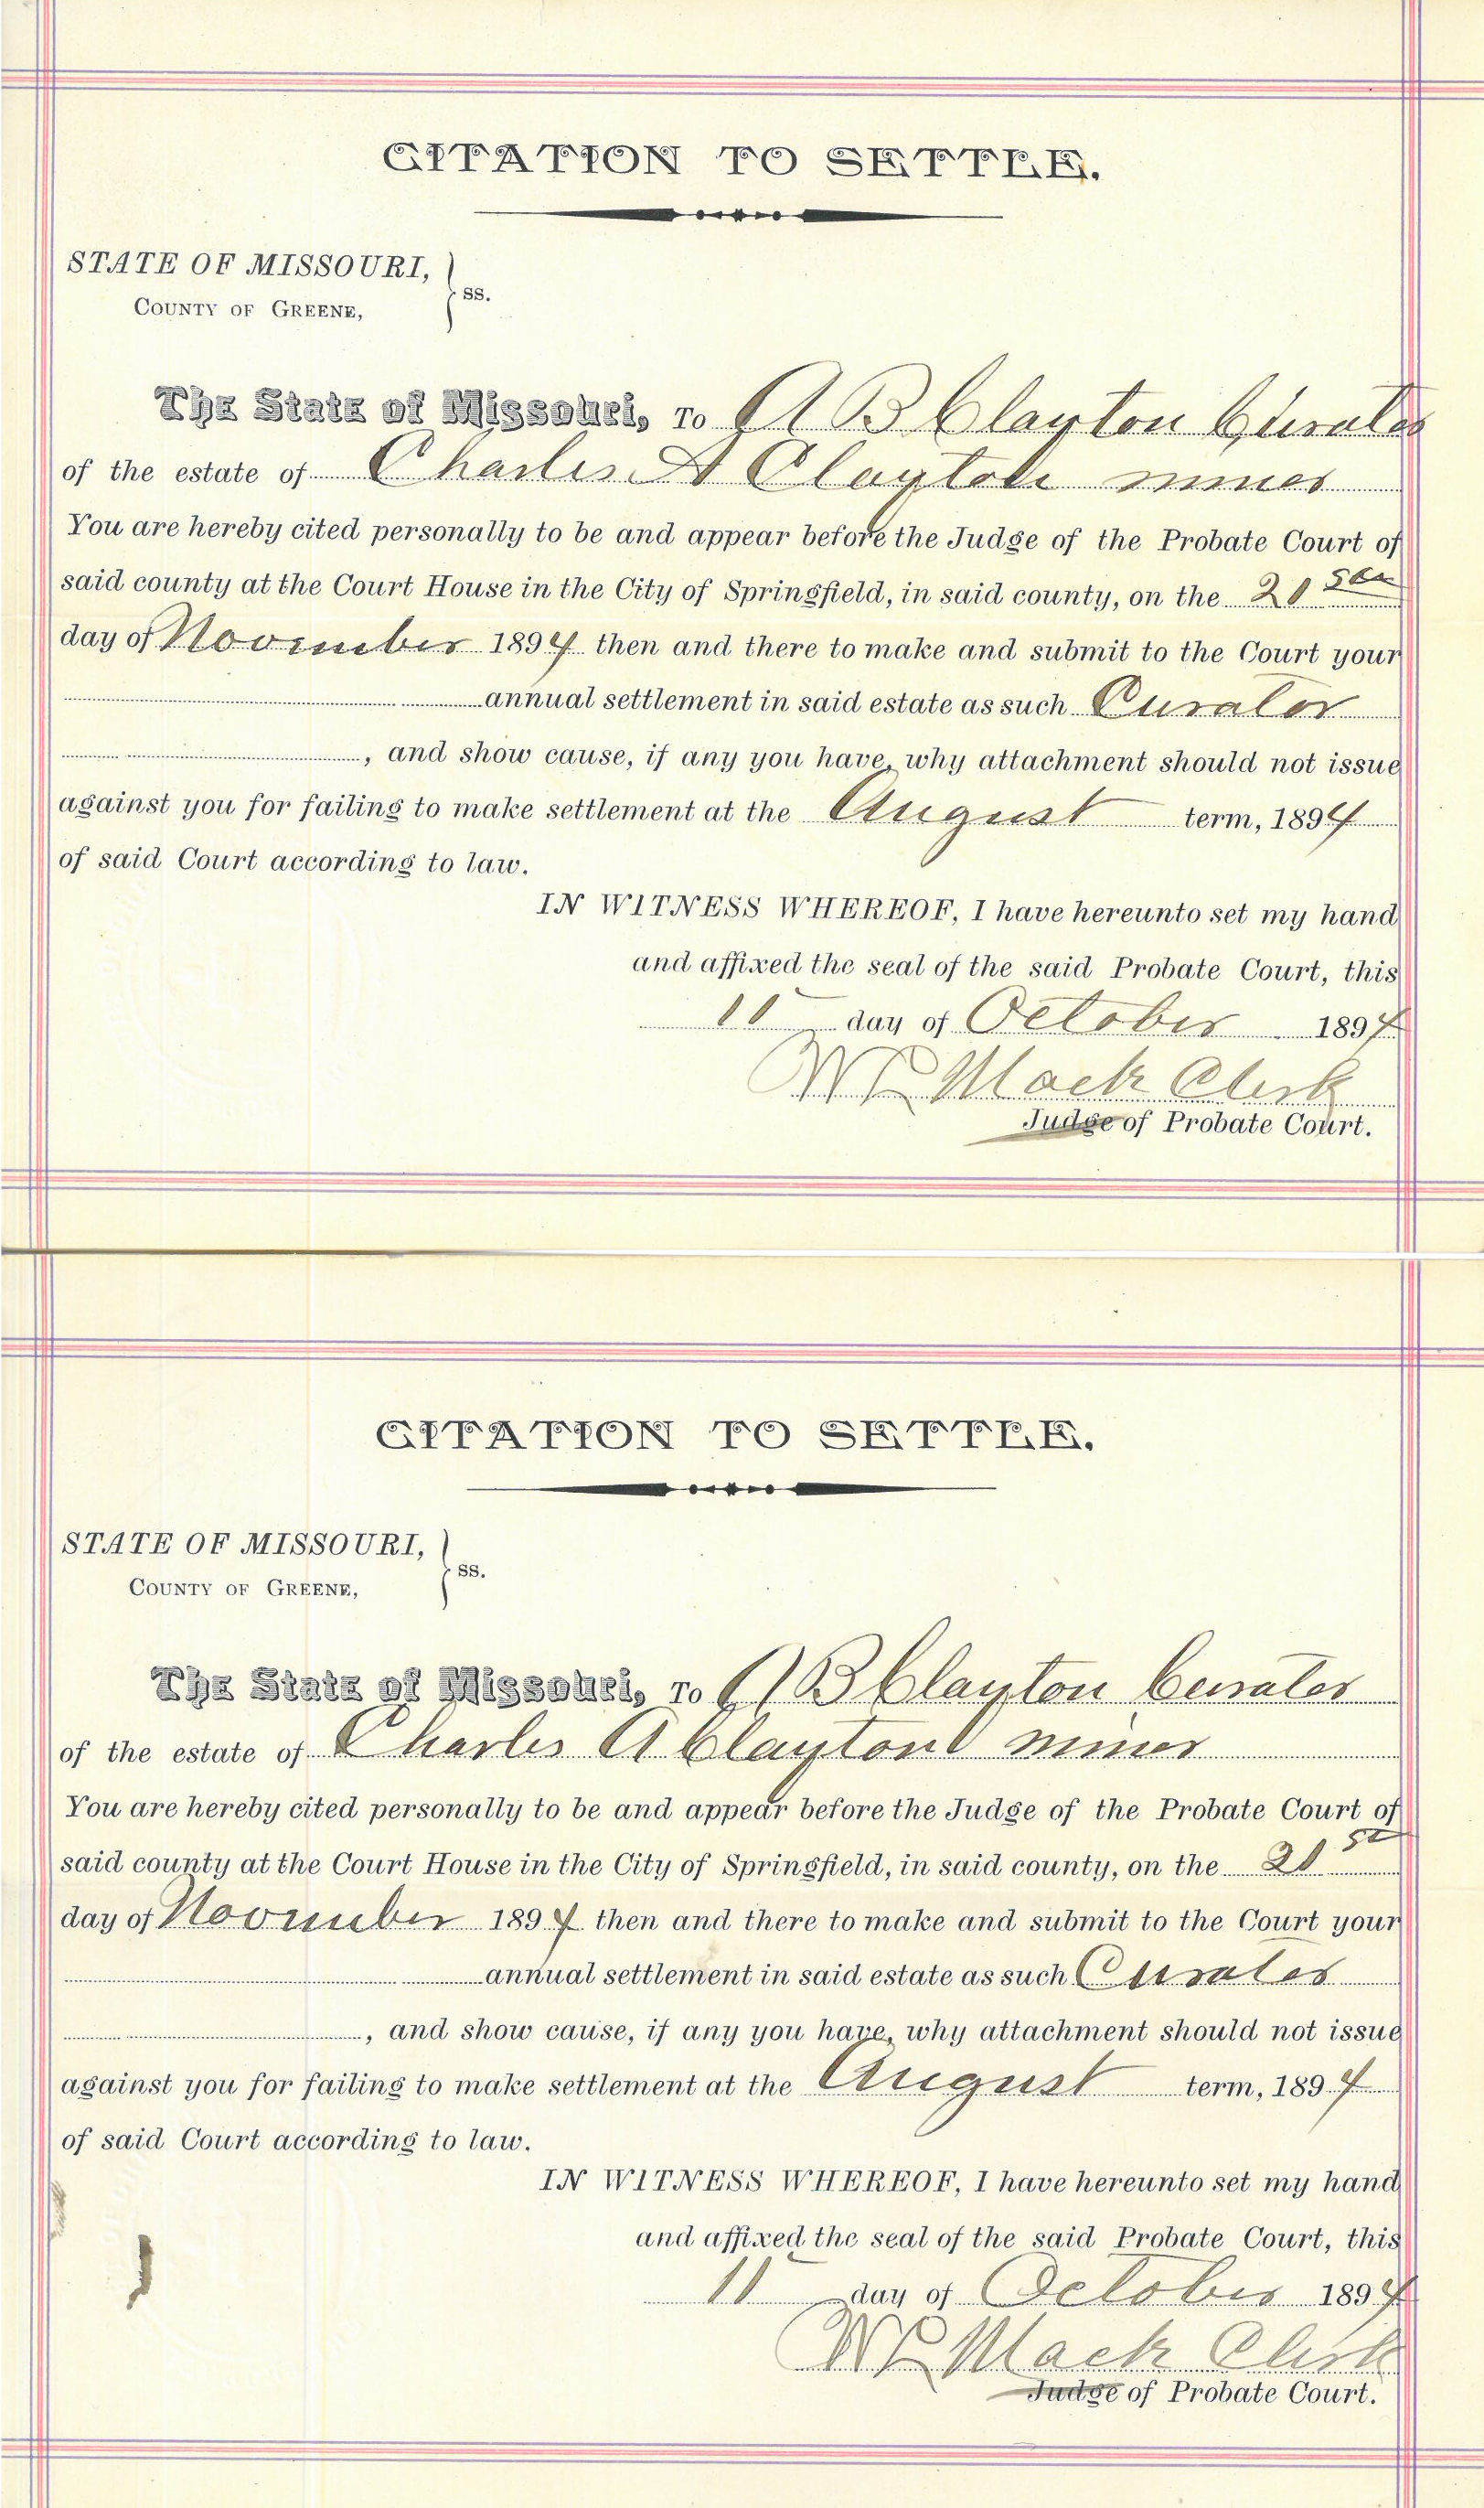 CITATION TO SETTLE.
STATE OF MISSOURI,
COUNTY OF GREENE, } ss.
The State of Missouri, To A B Clayton Curator
of the estate of Charles A Clayton minor
You are hereby cited personally to be and appear before the Judge of the Probate Court of
said county at the Court House in the City of Springfield, in said county, on the 21st
day of November 1894 then and there to make and submit to the Court your
annual settlement in said estate as such Curator
, and show cause, if any you have, why attachment should not issue
against you for failing to make settlement at the August term, 1894
of said Court according to law.
IN WITNESS WHEREOF, I have hereunto set my hand
and affixed the seal of the said Probate Court, this
11 day of October 1894
Mack Clerk
Judge of Probate Court.
CITATION TO SETTLE.
STATE OF MISSOURI,
COUNTY OF GREENE, } ss.
The State of Missouri, To A B Clayton Curator
of the estate of Charles A Clayton minor
You are hereby cited personally to be and appear before the Judge of the Probate Court of
said county at the Court House in the City of Springfield, in said county, on the 21st
day of November 1894 then and there to make and submit to the Court your
annual settlement in said estate as such Curator
, and show cause, if any you have, why attachment should not issue
against you for failing to make settlement at the August term, 1894
of said Court according to law.
IN WITNESS WHEREOF, I have hereunto set my hand
and affixed the seal of the said Probate Court, this
11 day of October 1894
Mack Clerk
Judge of Probate Court.